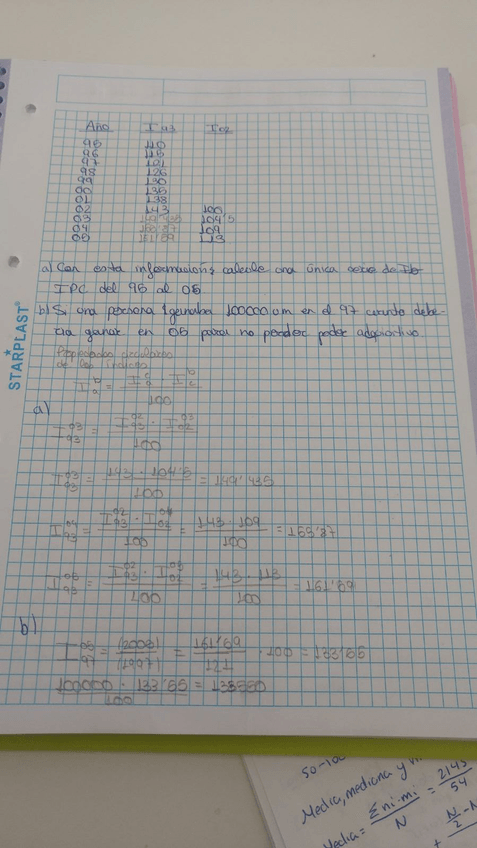 Año I 93 I 02
95 110
96 115
97 121
98 126
99 130
00 135
01 138
02 143 100
03 149'435 104'5
04 155'87 109
05 161'59 113
a) Con esta información, calcule una única serie de
IPC del 95 al 05
b) Si una persona ganaba 100000 um en el 97 cuanto debe-
ría ganar en 05 para no perder poder adquisitivo
Propiedades circulares
de los índices
I^b_a = I^c_a · I^b_c / 100
a)
I^03_93 = I^02_93 · I^03_02 / 100
I^03_93 = 143 · 104'5 / 100 = 149'435
I^04_93 = I^02_93 · I^04_02 / 100 = 143 · 109 / 100 = 155'87
I^05_93 = I^02_93 · I^05_02 / 100 = 143 · 113 / 100 = 161'59
b)
I^05_97 = (2005) / (1997) = 161'59 / 121 · 100 = 133'55
100000 · 133'55 / 100 = 133550
STARPLAST
50-100
Media, mediana y
Media = Σ ni·mi / N = 2143 / 54